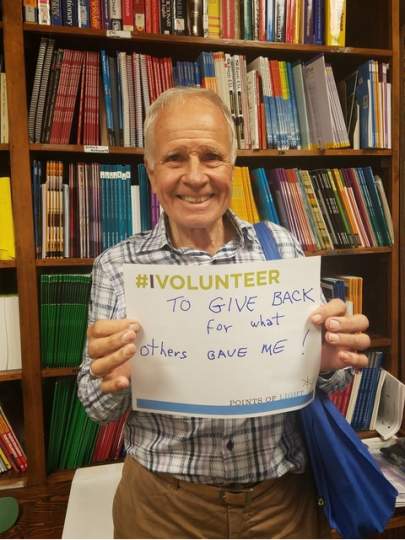 #IVOLUNTEER
TO GIVE BACK
for what
others GAVE ME !
POINTS OF LIGHT